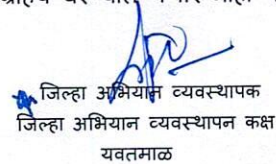 जिल्हा अभियान व्यवस्थापक
जिल्हा अभियान व्यवस्थापन कक्ष
यवतमाळ